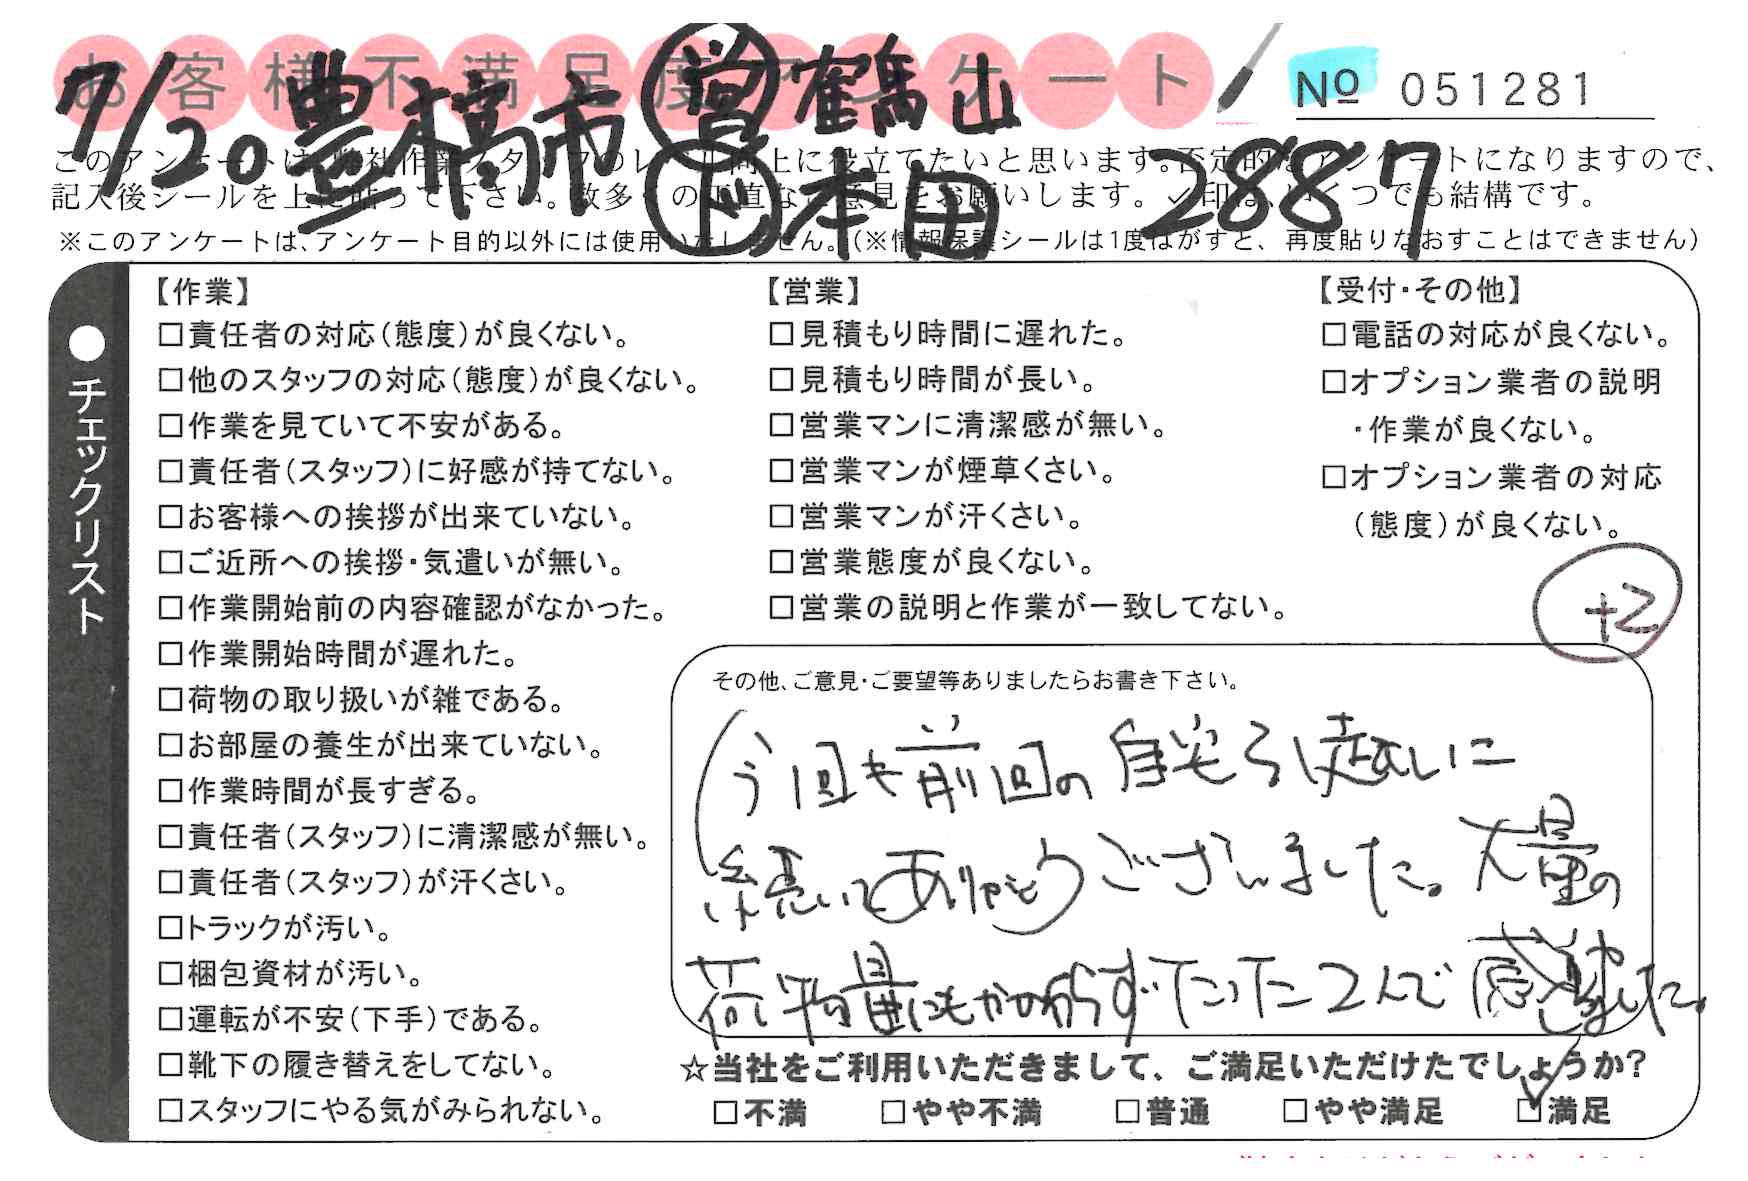 お客様不満足度アンケート
No 051281
7/20 豊橋市 営 鶴山
下 本田 2887
このアンケートは、弊社作業スタッフのレベル向上に役立てたいと思います。否定的なアンケートになりますので、
記入後シールを上に貼って下さい。数多くの正直なご意見をお願いします。✓印は、いくつでも結構です。
※このアンケートは、アンケート目的以外には使用いたしません。(※情報保護シールは1度はがすと、再度貼りなおすことはできません)
●チェックリスト
【作業】
□責任者の対応(態度)が良くない。
□他のスタッフの対応(態度)が良くない。
□作業を見ていて不安がある。
□責任者(スタッフ)に好感が持てない。
□お客様への挨拶が出来ていない。
□ご近所への挨拶・気遣いが無い。
□作業開始前の内容確認がなかった。
□作業開始時間が遅れた。
□荷物の取り扱いが雑である。
□お部屋の養生が出来ていない。
□作業時間が長すぎる。
□責任者(スタッフ)に清潔感が無い。
□責任者(スタッフ)が汗くさい。
□トラックが汚い。
□梱包資材が汚い。
□運転が不安(下手)である。
□靴下の履き替えをしてない。
□スタッフにやる気がみられない。
【営業】
□見積もり時間に遅れた。
□見積もり時間が長い。
□営業マンに清潔感が無い。
□営業マンが煙草くさい。
□営業マンが汗くさい。
□営業態度が良くない。
□営業の説明と作業が一致してない。
【受付・その他】
□電話の対応が良くない。
□オプション業者の説明
・作業が良くない。
□オプション業者の対応
(態度)が良くない。
+2
その他、ご意見・ご要望等ありましたらお書き下さい。
今回も前回の自宅引越しに
続いてありがとうございました。大量の
荷物量にもかかわらずたった2人で感謝しました。
☆当社をご利用いただきまして、ご満足いただけたでしょうか?
□不満 □やや不満 □普通 □やや満足 ☑満足